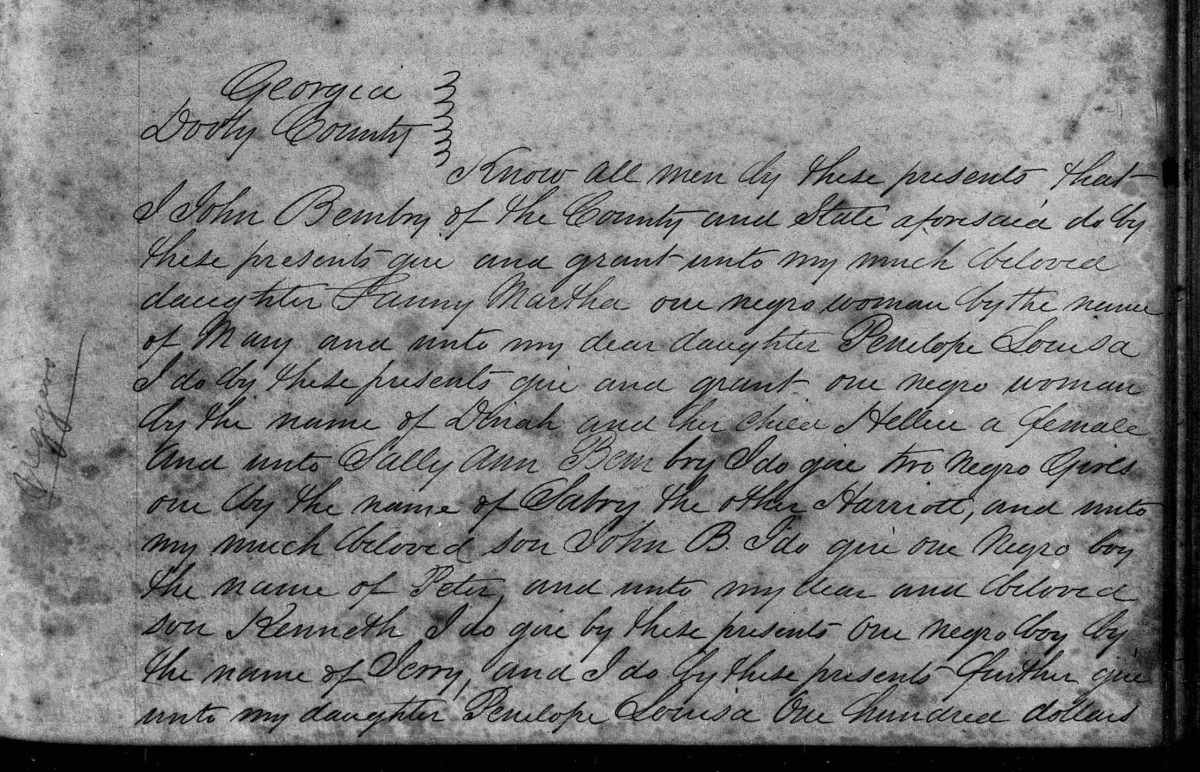 Georgia
Dooly County
Know all men by these presents that
I John Bembry of the County and State aforesaid do by
these presents give and grant unto my much beloved
daughter Fanny Martha one negro woman by the name
of Mary and unto my dear daughter Penelope Louisa
I do by these presents give and grant one negro woman
by the name of Dinah and her child Hellen a female
and unto Sally Ann Bembry I do give two negro Girls
one by the name of Sabry the other Harriott, and unto
my much beloved son John B. I do give one Negro boy
the name of Peter, and unto my dear and beloved
son Kenneth I do give by these presents One negro boy by
the name of Jerry, and I do by these presents further give
unto my daughter Penelope Louisa One hundred dollars